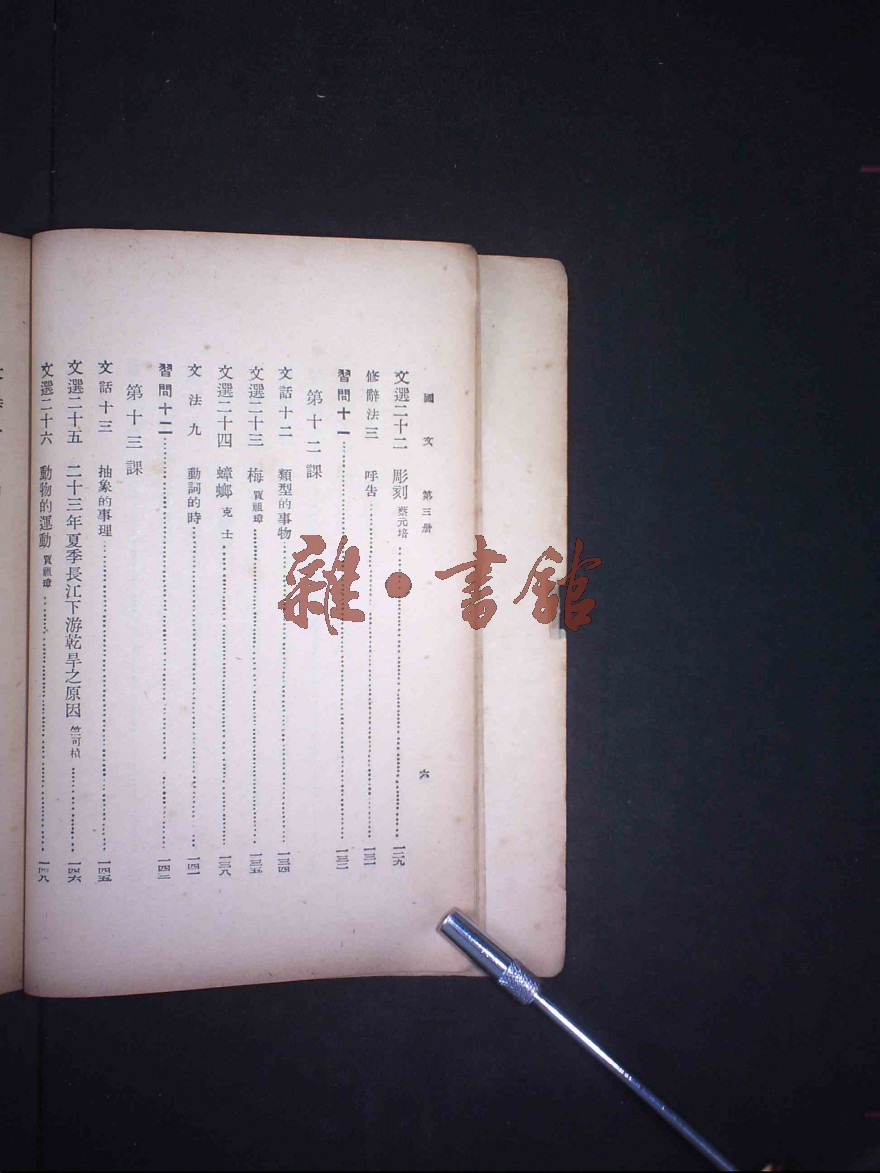 國文 第三册 六
文選二十二 彫刻 蔡元培 一二九
修辭法三 呼告 一三一
習問十一 一三二
第十二課
文話十二 類型的事物 一三四
文選二十三 梅 賈祖璋 一三五
文選二十四 蟑螂 克士 一三八
文法九 動詞的時 一四一
習問十二 一四二
第十三課
文話十三 抽象的事理 一四五
文選二十五 二十三年夏季長江下游乾旱之原因 竺可楨 一四六
文選二十六 動物的運動 賈祖璋 一四九
雜·書館